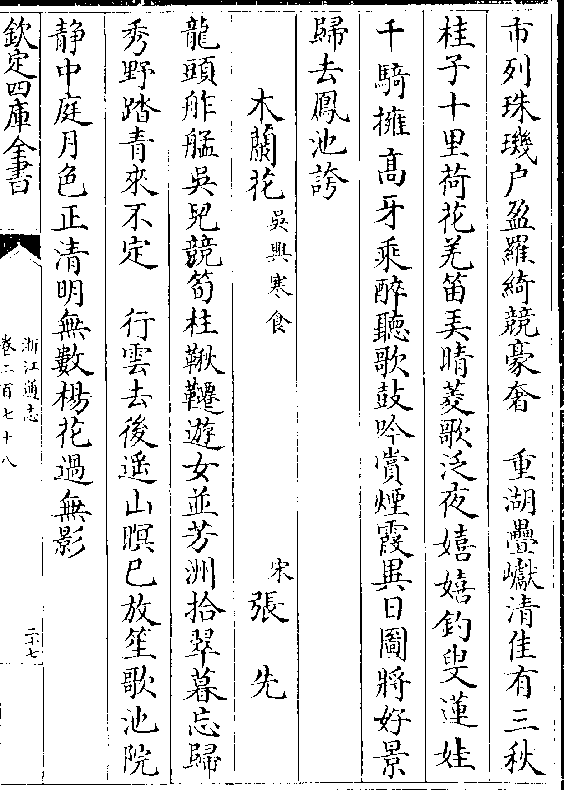 市列珠璣户盈羅綺競豪奢　重湖疊巘清佳有三秋
桂子十里荷花羌笛弄晴菱歌泛夜嬉嬉釣叟蓮娃
千騎擁髙牙乘醉聽歌鼓吟賞煙霞異日圖將好景
歸去鳳池誇
木蘭花吳興寒食　宋張先
龍頭舴艋吳兒競筍柱鞦韆遊女並芳洲拾翠暮忘歸
秀野踏青來不定　行雲去後遥山暝已放笙歌池院
静中庭月色正清明無數楊花過無影
欽定四庫全書
浙江通志
卷二百七十八
二十七